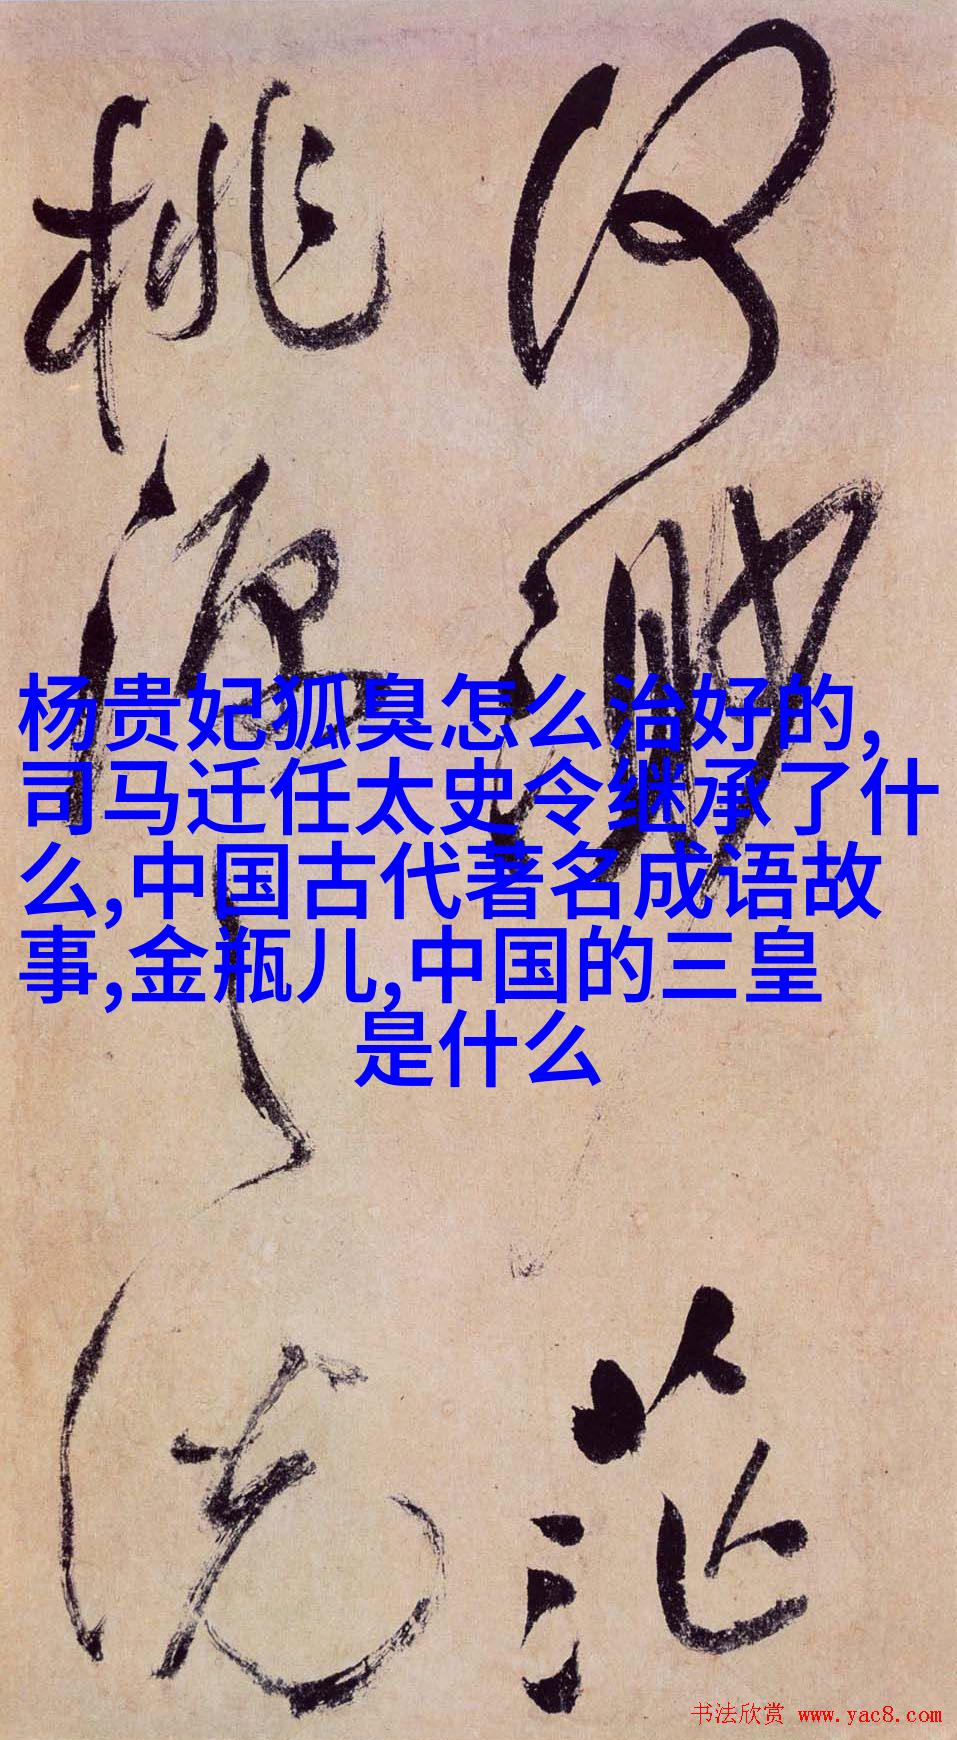 何渺茫
桃源之說
杨贵妃狐臭怎么治好的,
司马迁任太史令继承了什
么,中国古代著名成语故
事,金瓶儿,中国的三皇
是什么
书法欣赏 www.yac8.com